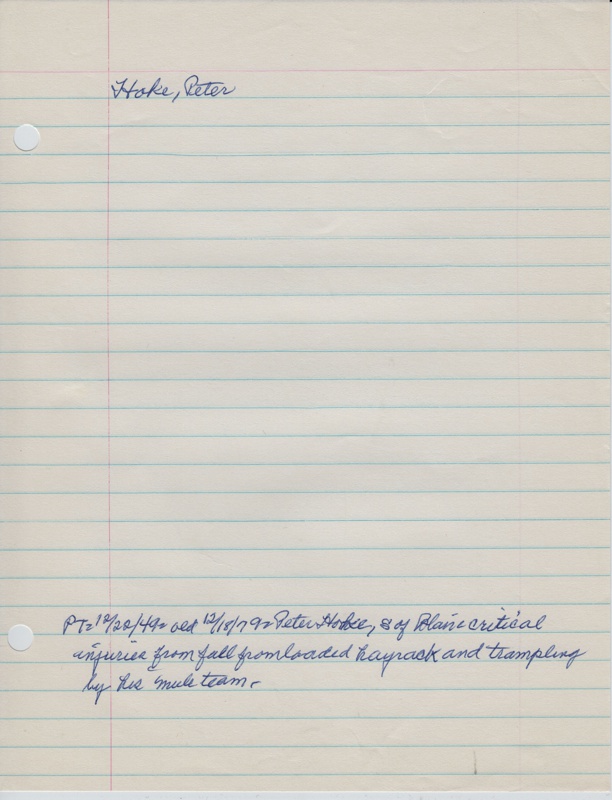 Hoke, Peter
PT= 12/22/49= wed 12/18/79= Peter Hoke, s of Blain critical
injuries from fall from loaded hayrack and trampling
by his mule team.-